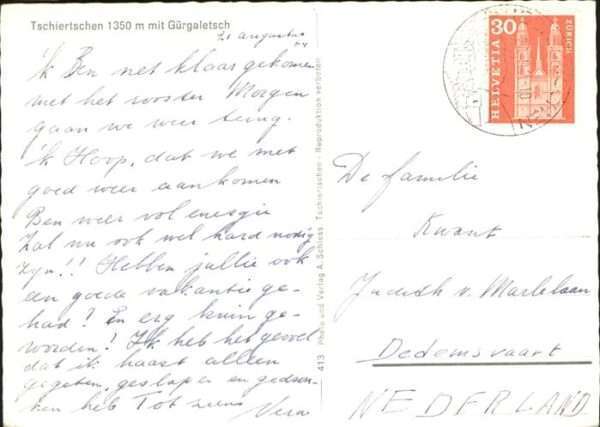 Tschiertschen 1350 m mit Gürgaletsch
21 augustus
'k Ben net klaar gekomen
met het rooster Morgen
gaan we weer terug.
'k Hoop, dat we met
goed weer aankomen
Ben weer vol energie
Zal nu ook wel hard nodig
zijn!! Hebben jullie ook
een goede vakantie ge-
had? En erg bruin ge-
worden! Ik heb het gevoel
dat ik haast alleen
gegeten, geslapen en gedron-
ken heb Tot ziens
Vera
413 Photo und Verlag A. Schless, Tschiertschen - Reproduktion verboten
HELVETIA
30
ZÜRICH
De familie
Kwant
Judith v. Marlelaan
Dedemsvaart
NEDERLAND